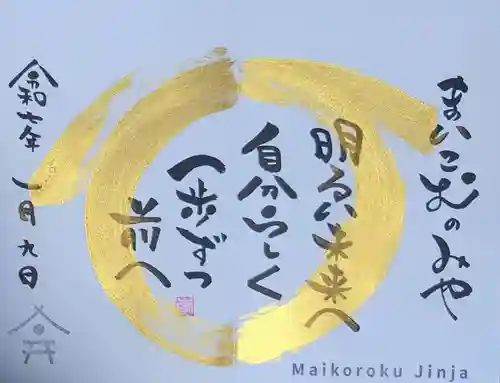 まいこむのみや
明るい未来へ
自分らしく
一歩ずつ
前へ
令和七年 一月九日
Maikoroku Jinja